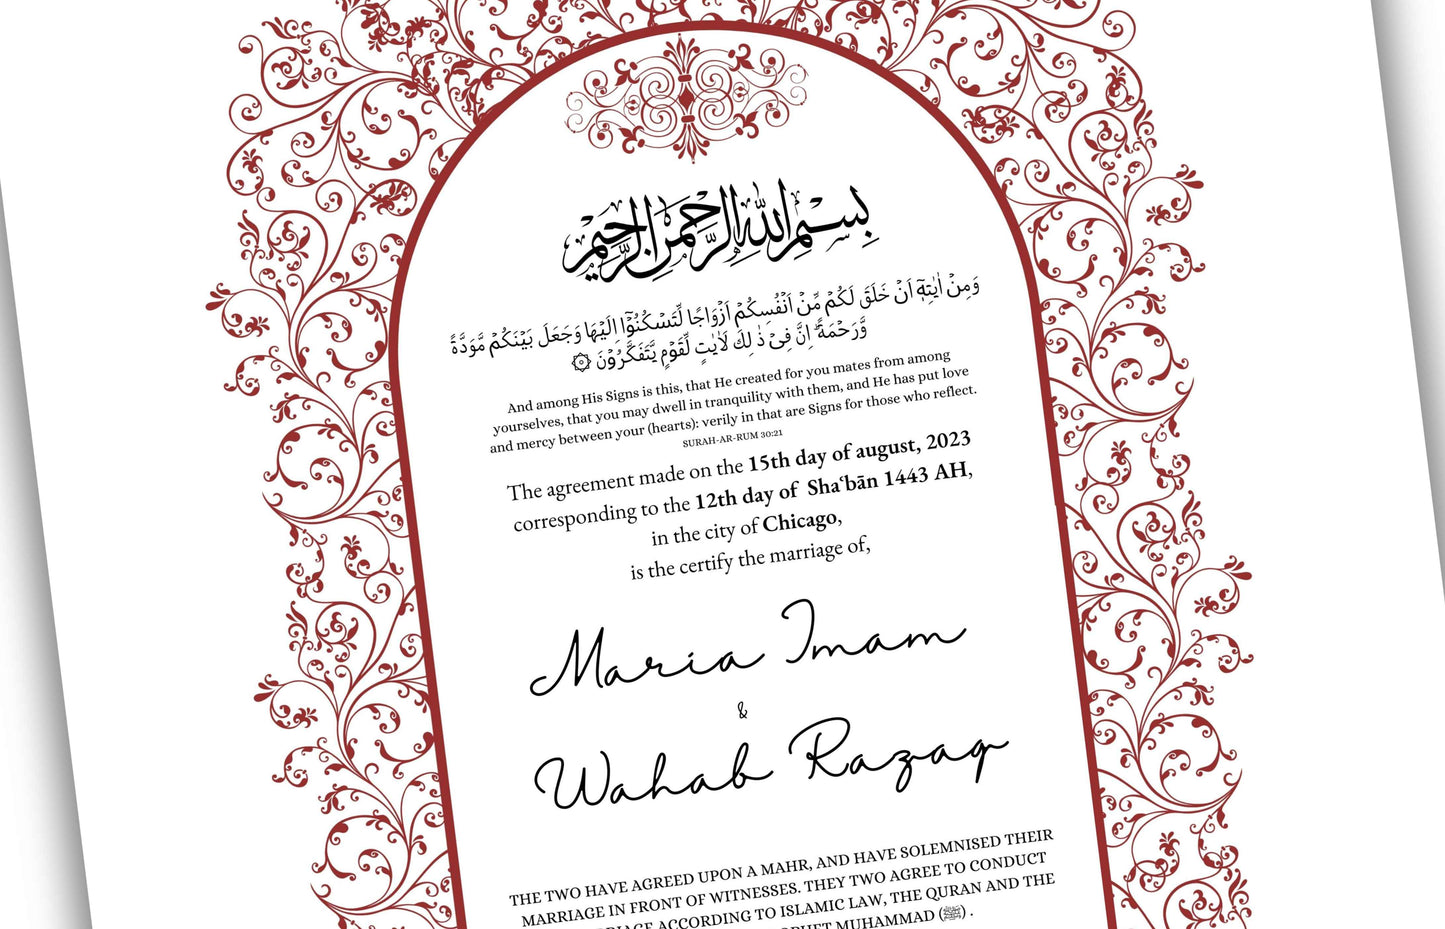 بِسْمِ اللهِ الرَّحْمٰنِ الرَّحِيْمِ
وَمِنْ اٰيٰتِهٖٓ اَنْ خَلَقَ لَكُمْ مِّنْ اَنْفُسِكُمْ اَزْوَاجًا لِّتَسْكُنُوْٓا اِلَيْهَا وَجَعَلَ بَيْنَكُمْ مَّوَدَّةً
وَّرَحْمَةً ۗ اِنَّ فِيْ ذٰ لِكَ لَاٰيٰتٍ لِّقَوْمٍ يَّتَفَكَّرُوْنَ
And among His Signs is this, that He created for you mates from among
yourselves, that you may dwell in tranquility with them, and He has put love
and mercy between your (hearts): verily in that are Signs for those who reflect.
SURAH-AR-RUM 30:21
The agreement made on the 15th day of august, 2023
corresponding to the 12th day of Shaʿbān 1443 AH,
in the city of Chicago,
is the certify the marriage of,
Maria Imam
&
Wahab Razaq
THE TWO HAVE AGREED UPON A MAHR, AND HAVE SOLEMNISED THEIR
MARRIAGE IN FRONT OF WITNESSES. THEY TWO AGREE TO CONDUCT
ACCORDING TO ISLAMIC LAW, THE QURAN AND THE
MUHAMMAD (ﷺ) .